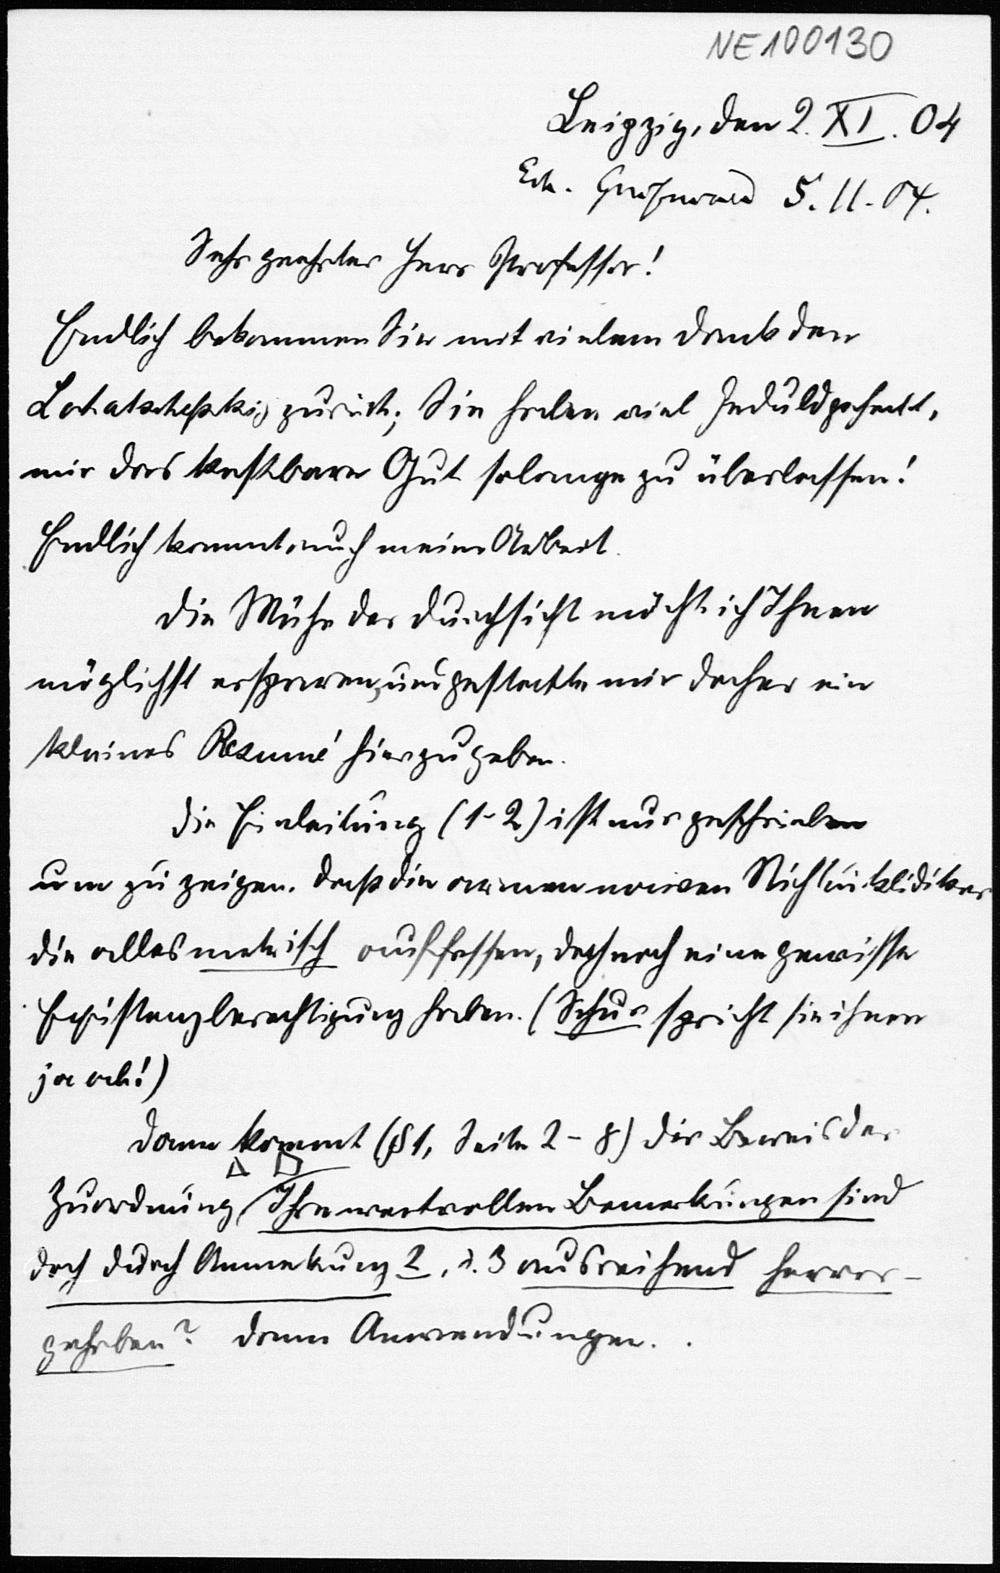 NE100130
Leipzig, den 2. XI. 04
Erh. Greifswald 5. 11. 04.
Sehr geehrter Herr Professor!
Endlich bekommen Sie mit vielem Dank den
Lobatschefskij zurück; Sie haben viel Geduld gehabt,
mir das kostbare Gut solange zu überlassen!
Endlich kommt auch meine Arbeit.
Die Mühe der Durchsicht möcht ich Ihnen
möglichst ersparen, und gestatte mir daher ein
kleines Resumé hierzugeben.
Die Einleitung (1-2) ist nur geschrieben
um zu zeigen, daß die armen naiven Nichteuklidiker
die alles metrisch auffassen, doch noch eine gewisse
Existenzberechtigung haben. (Schur spricht sie ihnen
ja ab!)
Dann kommt (§1, Seite 2-8) der Beweis der
Zuordnung. Ihre wertvollen Bemerkungen sind
doch durch Anmerkung 2, u. 3 ausreichend hervor-
gehoben? Dann Anwendungen.